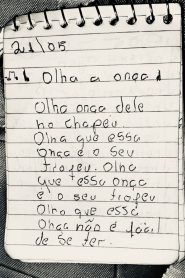 21/05
Olha a onça!
Olha onça dele
no chapéu.
Olha que essa
Onça é o seu
trofeu. Olha
que essa onça
é o seu trofeu
Olha que essa
Onça não é fácil
de se ter.